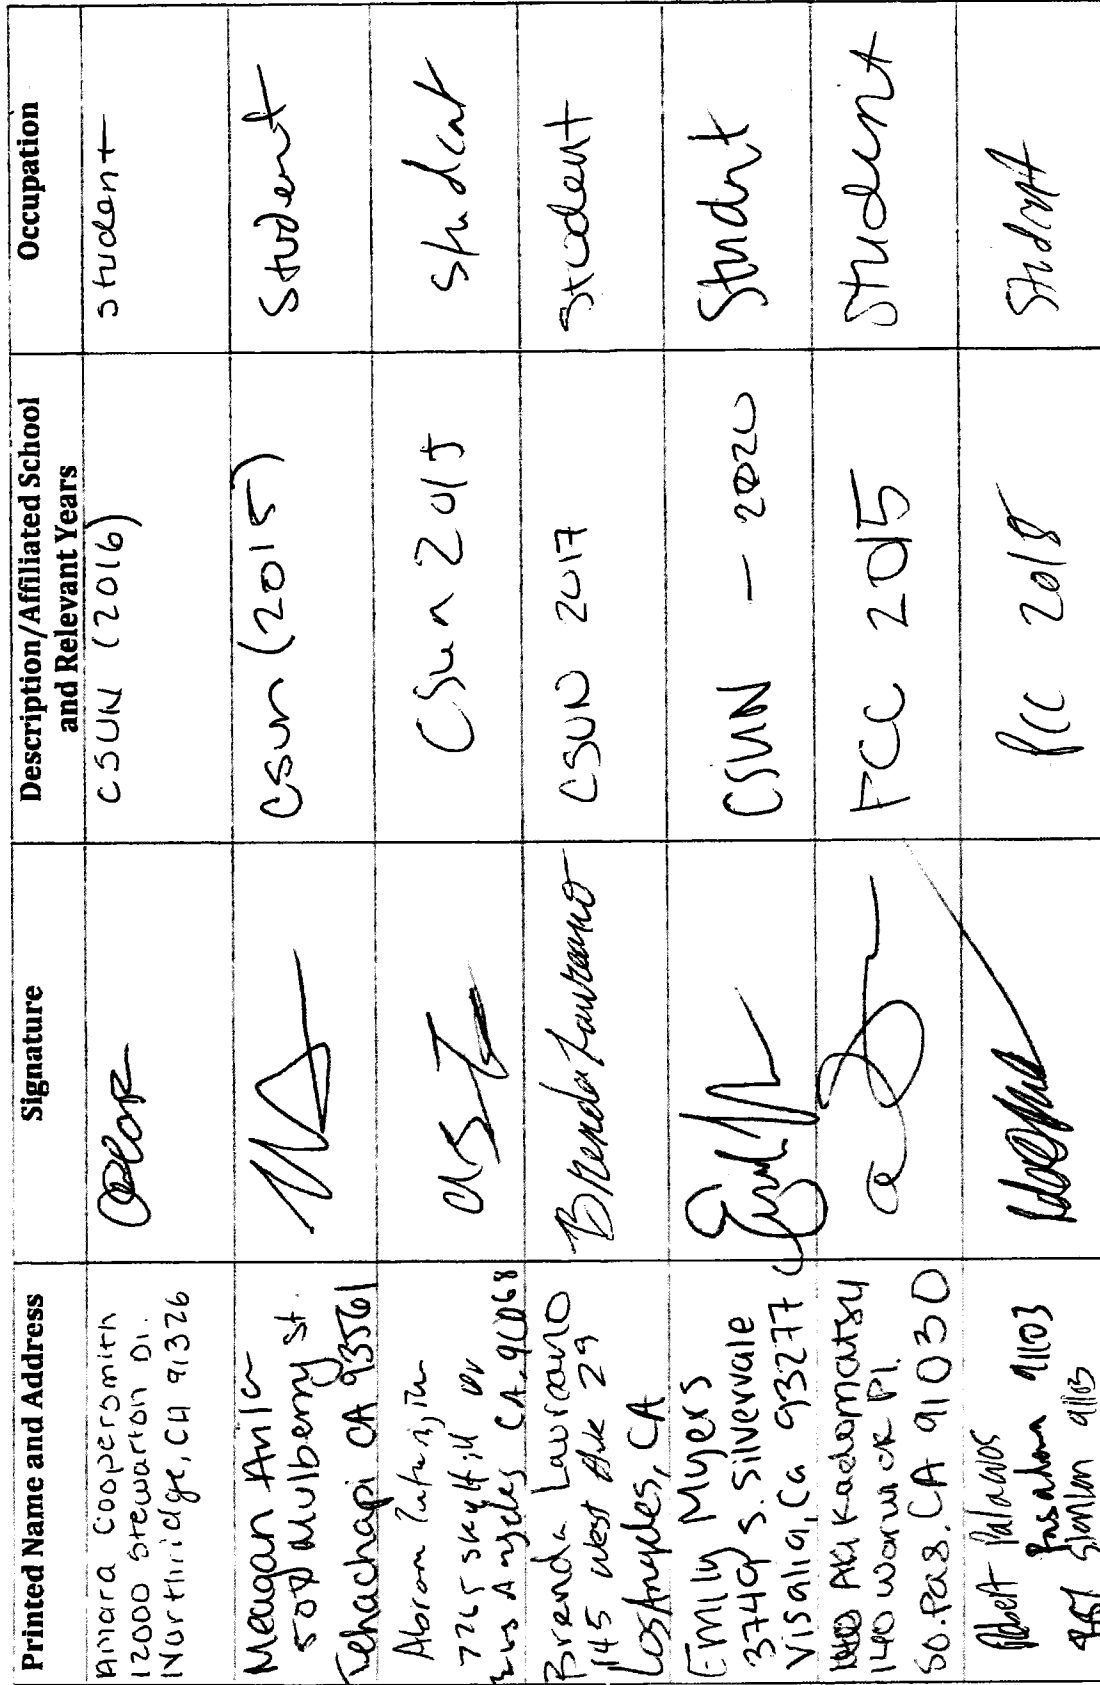 Printed Name and Address Signature Description/Affiliated School and Relevant Years Occupation
Amara Coopersmith
12000 Stewarton Dr.
Northridge, CA 91326
CSUN (2016)
student
Meagan
Mulberry St.
Tehachapi CA 93561
CSUN (2015)
Student
Abram
7265 skyhill Dr
Los Angeles CA, 90068
CSun 2015
Student
Brenda Laureano
145 West Ave 29
Los Angeles, CA
Brenda Laureano
CSUN 2017
student
Emily Myers
3749 S. Silvervale
Visalia, Ca 93277
CSUN - 2020
Student
Aki Kadomatsu
1140 Warwick Pl.
So. Pas. CA 91030
PCC 2015
Student
Robert Palacios
Pasadena 91103
91103
PCC 2018
Student